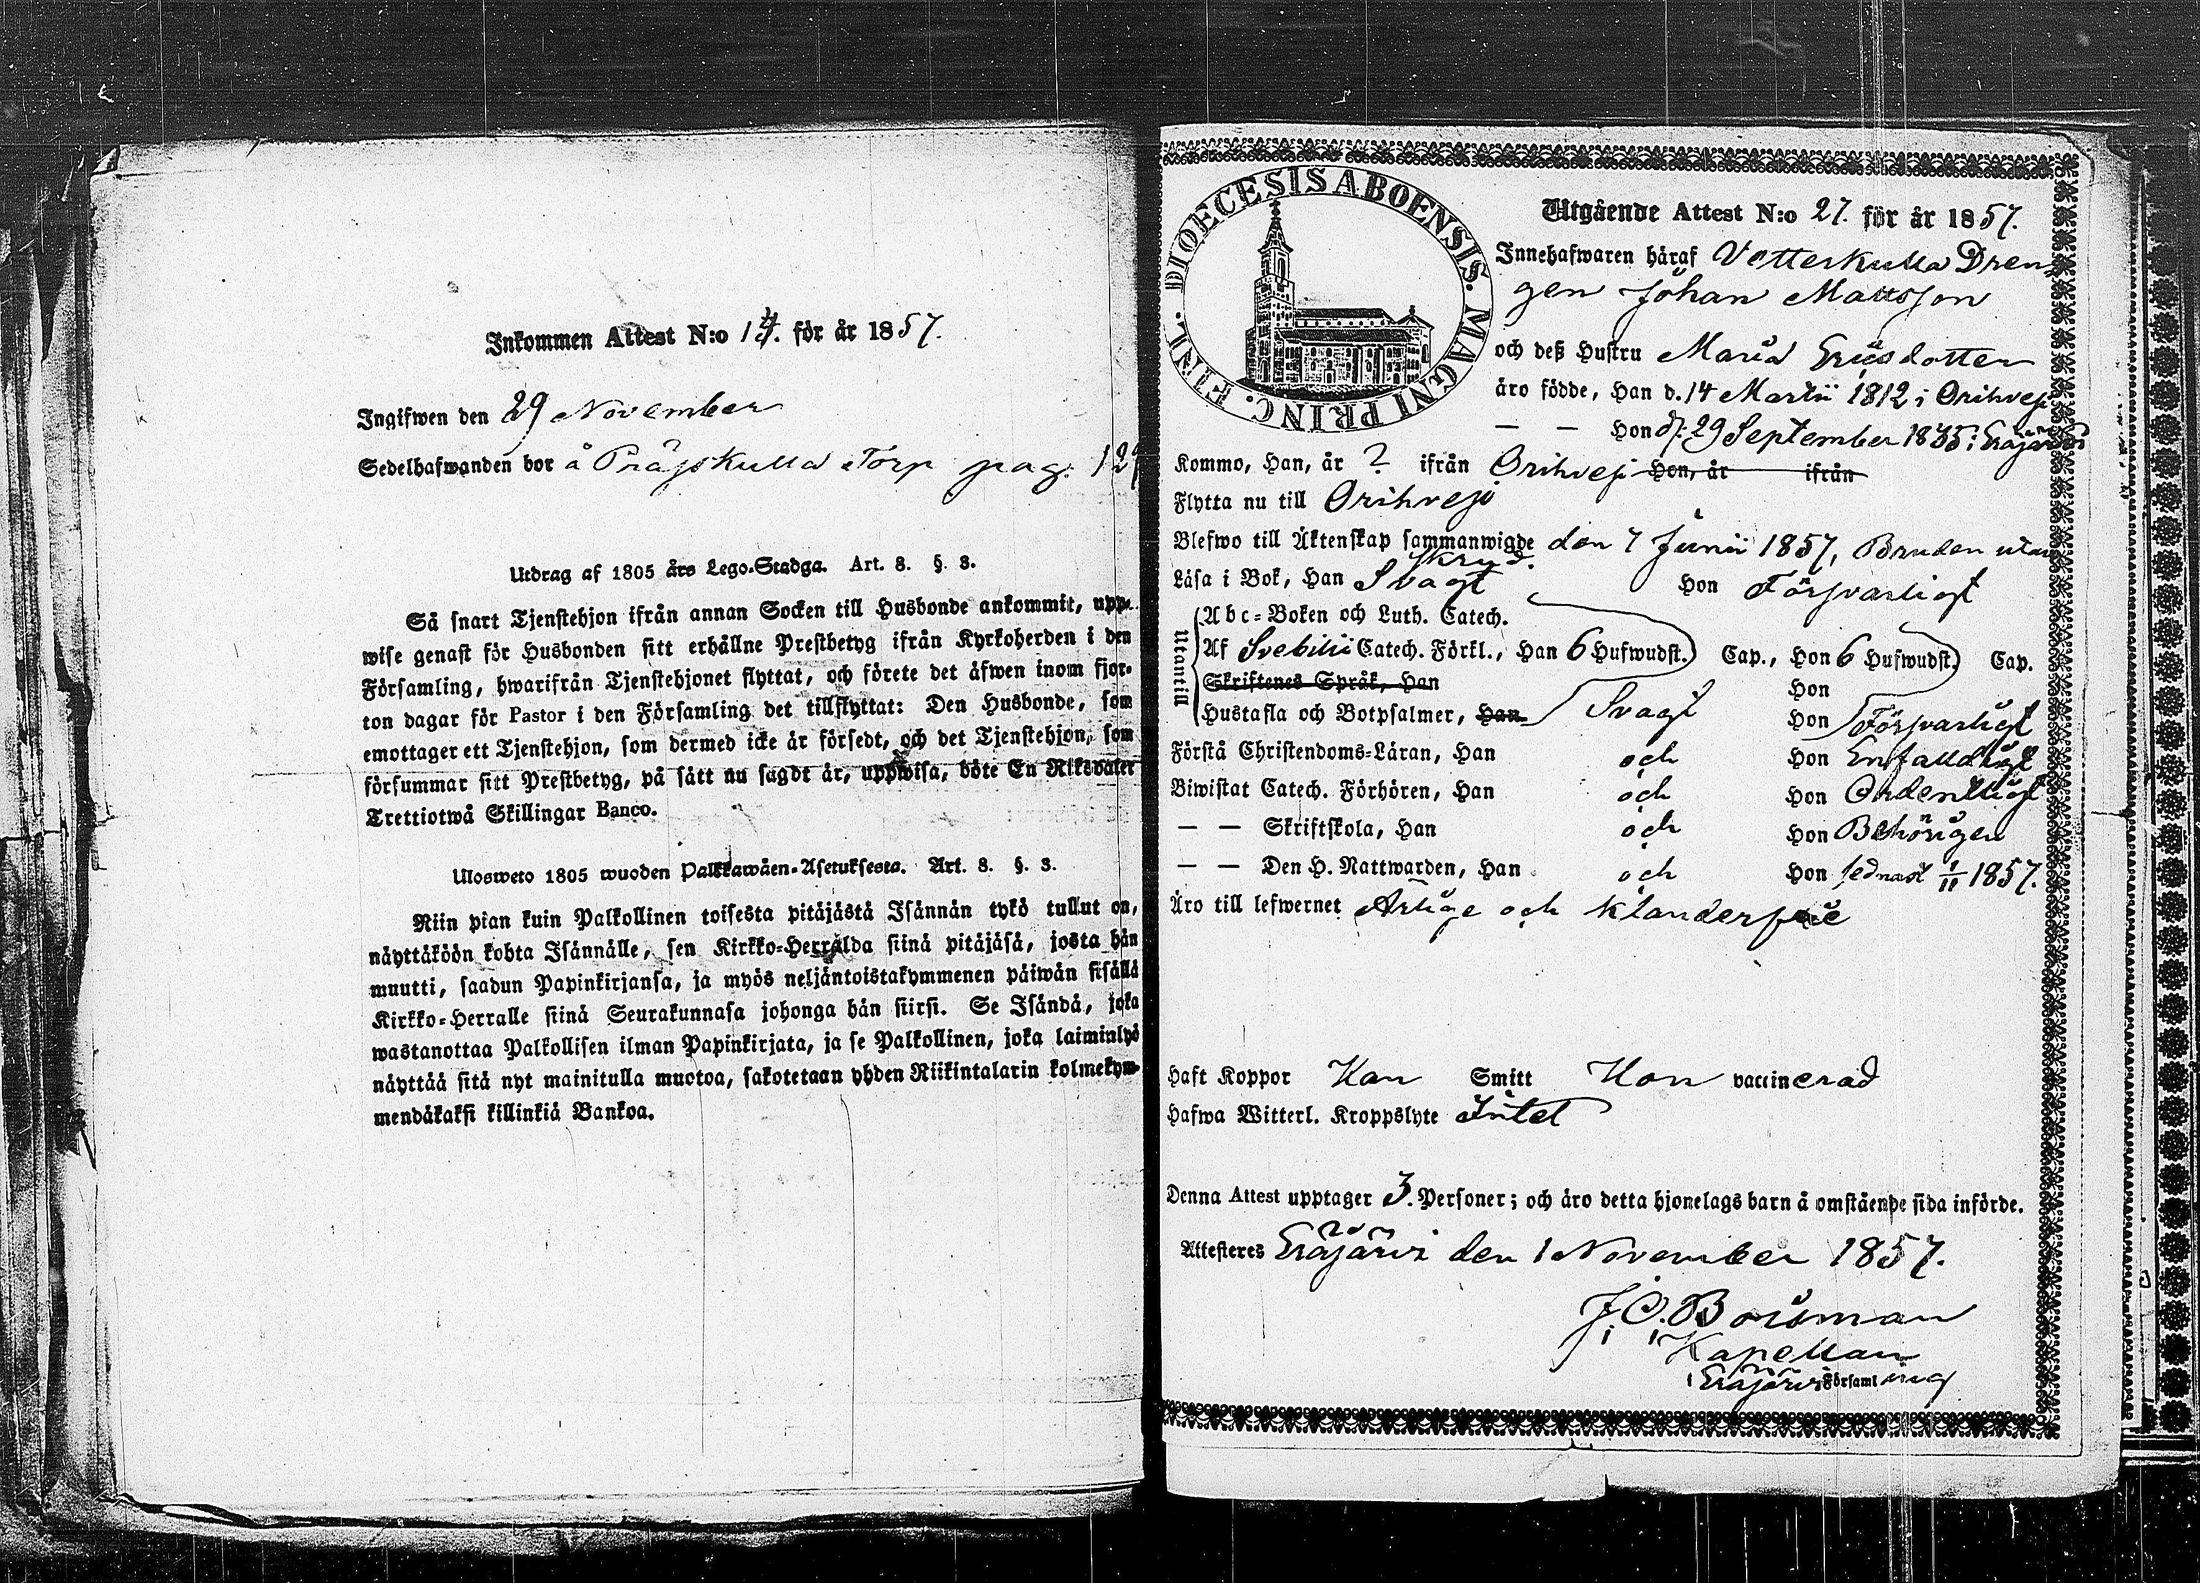 Inkommen Attest N:o 14. för år 1857.
Ingifwen den 29 November
Sedelhafwanden bor å Präjskulla Torp pag. 129
Utdrag af 1805 års Lego-Stadga. Art. 8. §. 3.
Så snart Tjenstehjon ifrån annan Socken till Husbonde ankommit, upp-
wise genast för Husbonden sitt erhållne Prestbetyg ifrån Kyrkoherden i den
Församling, hwarifrån Tjenstehjonet flyttat, och förete det äfwen inom fjor-
ton dagar för Pastor i den Församling det tillflyttat: Den Husbonde, som
emottager ett Tjenstehjon, som dermed icke är försedt, och det Tjenstehjon, som
försummar sitt Prestbetyg, på sätt nu sagdt är, uppwisa, böte En Riksdaler
Trettiotwå Skillingar Banco.
Ulosweto 1805 wuoden Palkkawäen-Asetuksesta. Art. 8. §. 3.
Niin pian kuin Palkollinen toisesta pitäjästä Isännän tykö tullut on,
näyttäköön kohta Isännälle, sen Kirkko-Herralda siinä pitäjäsä, josta hän
muutti, saadun Papinkirjansa, ja myös neljäntoistakymmenen päiwän sisällä
Kirkko-Herralle siinä Seurakunnasa johonga hän siirsi. Se Isändä, joka
wastanottaa Palkollisen ilman Papinkirjata, ja se Palkollinen, joka laiminlyö
näyttää sitä nyt mainitulla muotoa, sakotetaan yhden Riikintalarin kolmekym-
mendäkaksi killinkiä Bankoa.
DIOECESIS ABOENSIS. MAGNI PRINC. FINL.
Utgående Attest N:o 27. för år 1857.
Innehafwaren häraf Vetterkulla Dren-
gen Johan Mattsson
och deß Hustru Maria Eriksdotter
äro födde, Han d. 14 Martii 1812 i Orihvesi
— — Hon d. 29 September 1835 i Eräjärvi
Kommo, Han, år ? ifrån Orihvesi Hon, år ifrån
Flytta nu till Orihvesi
Blefwo till Äktenskap sammanwigde den 7 Junii 1857, Bruden utan
skrud.
Läsa i Bok, Han Svagt Hon Försvarligt
Utantill
Abc-Boken och Luth. Catech.
Af Svebilii Catech. Förkl., Han 6 Hufwudst. Cap., Hon 6 Hufwudst. Cap.
Skriftenes Språk, Han Hon
Hustafla och Botpsalmer, Han Svagt Hon Försvarligt
Förstå Christendoms-Läran, Han och Hon Enfaldigt
Biwistat Catech. Förhören, Han och Hon Ordentligt
— — Skriftskola, Han och Hon Behörigen
— — Den H. Nattwarden, Han och Hon sednast 1/11 1857.
Äro till lefwernet Ärlige och klanderfrie
Haft Koppor Han Smitt Hon vaccinerad
Hafwa Witterl. Kroppslyte Intet
Denna Attest upptager 3. Personer; och äro detta hjonelags barn å omstående sida införde.
Attesteras Eräjärvi den 1 November 1857.
J. O. Borsman
Kapellan
i Eräjärvi Församling